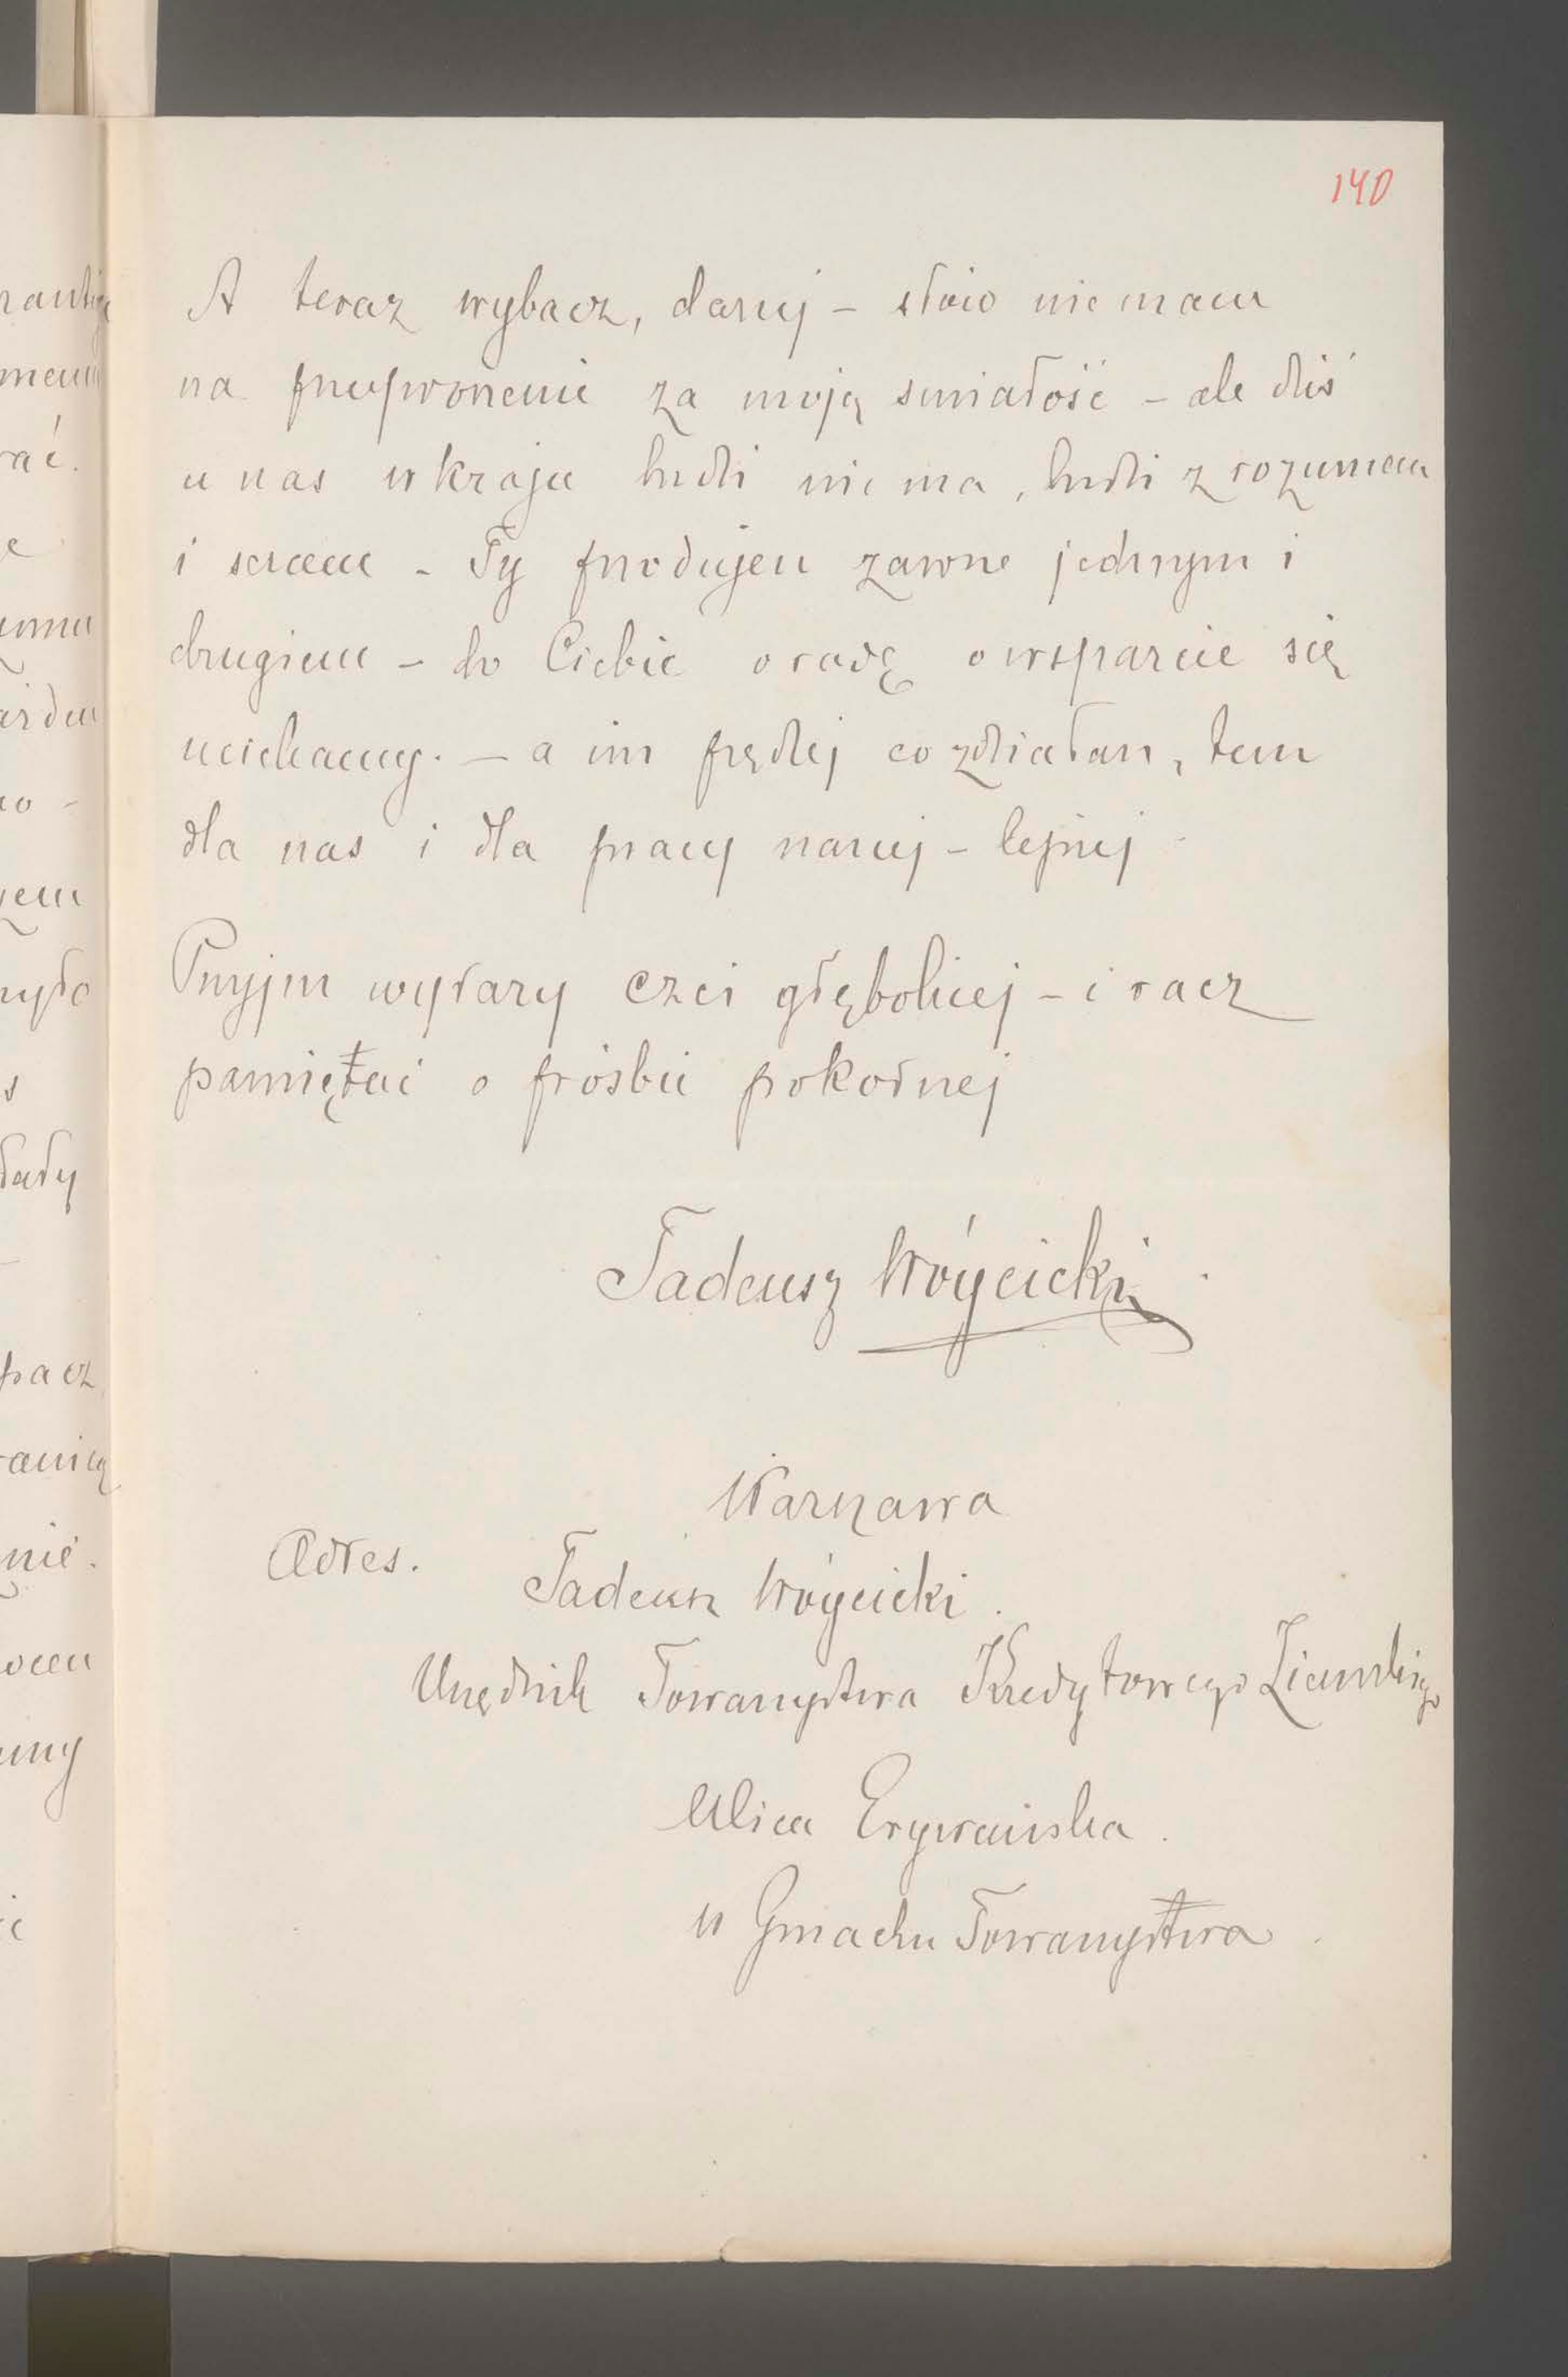 140
A teraz wybacz, daruj – słów nie mam
na przeproszenie za moją śmiałość – ale dziś
u nas w kraju ludzi nie ma, ludzi z rozumem
i sercem – Ty przodujesz zawsze jednym i
drugiem – do Ciebie o radę o wsparcie się
uciekamy. – a im prędzej co zdziałasz, tem
dla nas i dla pracy naszej – lepiej
Przyjm wyrazy czci głębokiej – i racz
pamiętać o prośbie pokornej
Tadeusz Wóycicki
Warszawa
Adres.
Tadeusz Wóycicki.
Urzędnik Towarzystwa Kredytowego Ziemskiego
Ulica Erywańska.
w Gmachu Towarzystwa